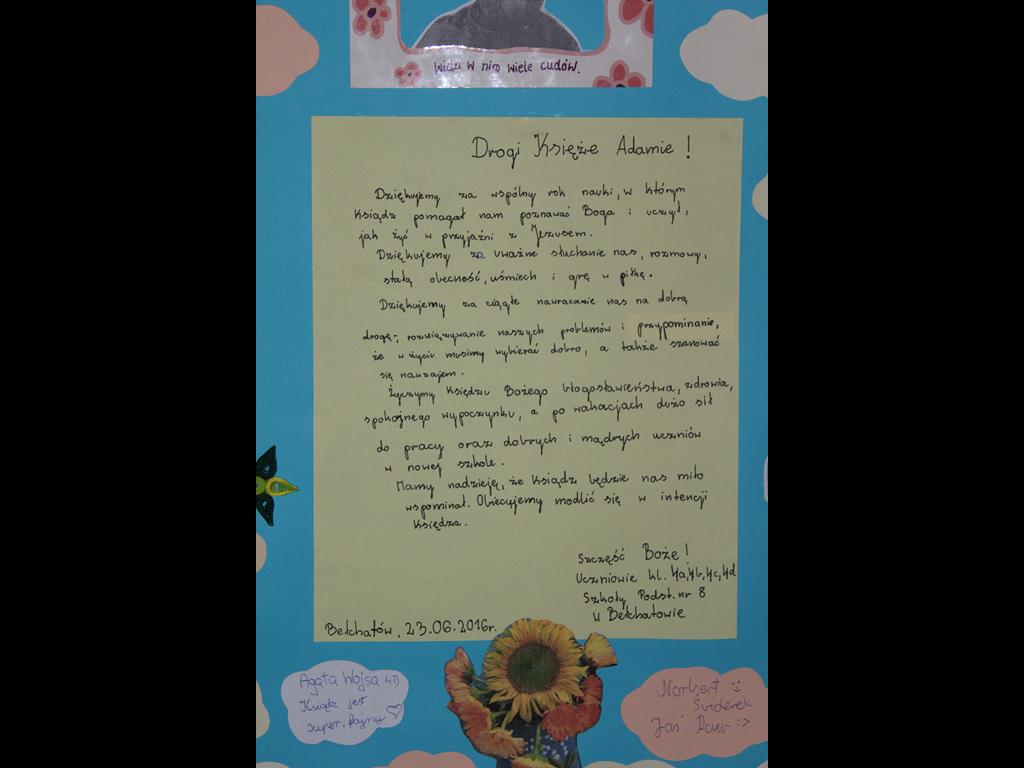 Widzę w nim wiele cudów.
Drogi Księże Adamie !
Dziękujemy za wspólny rok nauki, w którym
Ksiądz pomagał nam poznawać Boga i uczył,
jak żyć w przyjaźni z Jezusem.
Dziękujemy za uważne słuchanie nas, rozmowy,
stałą obecność, uśmiech i grę w piłkę.
Dziękujemy za ciągłe nawracanie nas na dobrą
drogę, rozwiązywanie naszych problemów i przypominanie,
że w życiu musimy wybierać dobro, a także szanować
się nawzajem.
Życzymy Księdzu Bożego błogosławieństwa, zdrowia,
spokojnego wypoczynku, a po wakacjach dużo sił
do pracy oraz dobrych i mądrych uczniów
w nowej szkole.
Mamy nadzieję, że Ksiądz będzie nas miło
wspominał. Obiecujemy modlić się w intencji
Księdza.
Szczęść Boże !
Uczniowie kl. 4a,4b,4c,4d
Szkoły Podst. nr 8
w Bełchatowie
Bełchatów, 23.06.2016r.
Agata Wojsa 4D
Ksiądz jest
super, fajny ♡
Norbert :)
Świderek
Jaś :>